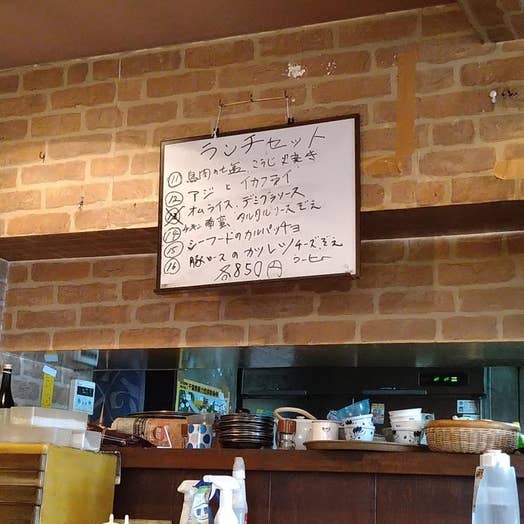 ランチセット
⑪ 鳥肉の こうじ 焼き
⑫ アジ と イカフライ
⑬ オムライス、デミグラソース
⑭ チキン タルタルソースぞえ
⑮ シーフードのカルパッチョ
⑯ 豚ロースのカツレツ チーズぞえ
各850円 コーヒー